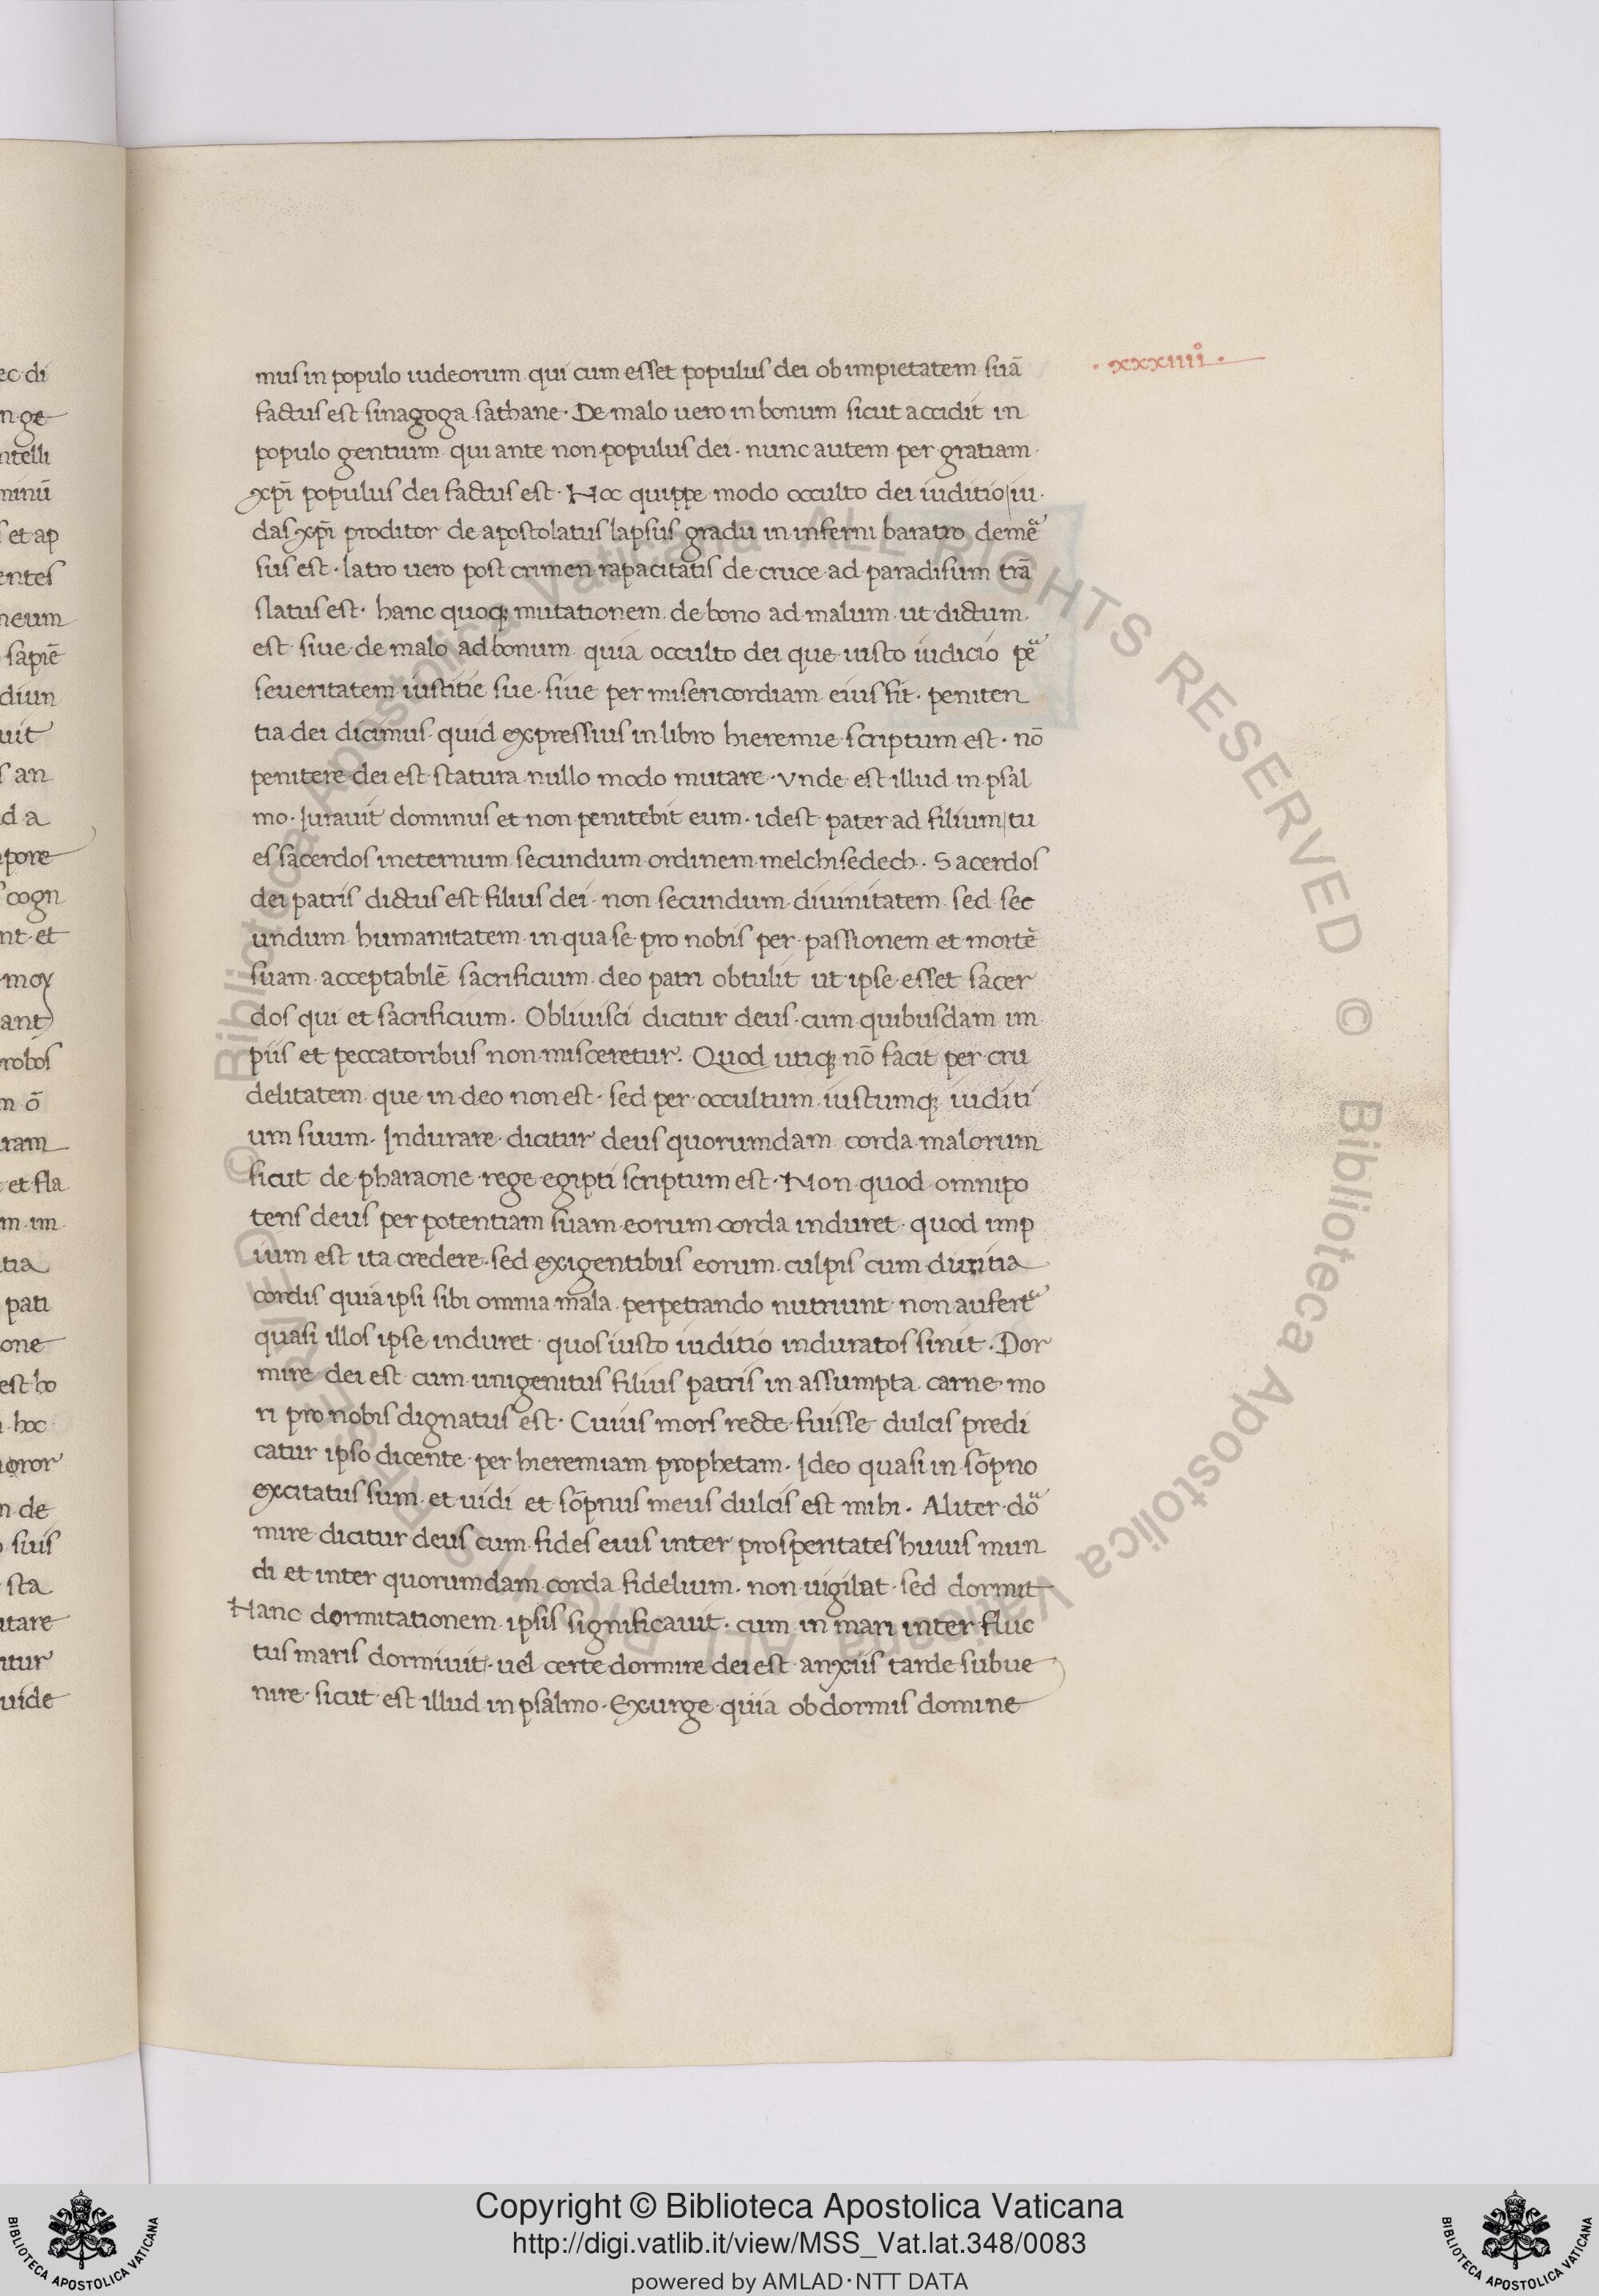 .xxxiiii°.
mus in populo iudeorum qui cum esset populus dei ob impietatem suā
factus est sinagoga sathane. De malo uero in bonum sicut accidit in
populo gentium qui ante non populus dei. nunc autem per gratiam
xpī populus dei factus est. Hoc quippe modo occulto dei iuditio iu
das xpī proditor de apostolatus lapsus gradu in inferni baratro demē
sus est. latro uero post crimen rapacitatis de cruce ad paradisum trā
slatus est. hanc quoq; mutationem de bono ad malum ut dictum
est siue de malo ad bonum quia occulto dei que iusto iudicio pe
seueritatem iustitie sue. siue per misericordiam eius fit. peniten
tia dei dicimus. quid expressius in libro hieremie scriptum est. nō
penitere dei est statura nullo modo mutare. vnde est illud in psal
mo. Jurauit dominus et non penitebit eum. idest pater ad filium tu
es sacerdos in eternum secundum ordinem melchisedech. Sacerdos
dei patris dictus est filius dei. non secundum diuinitatem sed sec
undum humanitatem in qua se pro nobis per passionem et mortē
suam acceptabilē sacrificium deo patri obtulit ut ipse esset sacer
dos qui et sacrificium. Obliuisci dicitur deus. cum quibusdam im
piis et peccatoribus non misceretur. Quod utiq; nō facit per cru
delitatem que in deo non est. sed per occultum iustumq; iuditi
um suum. Indurare dicitur deus quorumdam corda malorum
sicut de pharaone rege egipti scriptum est. Non quod omnipo
tens deus per potentiam suam eorum corda induret. quod imp
ium est ita credere. sed exigentibus eorum culpis cum duritia
cordis quia ipsi sibi omnia mala perpetrando nutriunt non aufert
quasi illos ipse induret quos iusto iuditio induratos sinit. Dor
mire dei est cum unigenitus filius patris in assumpta carne mo
ri pro nobis dignatus est. Cuius mors recte fuisse dulcis predi
catur ipso dicente per hieremiam prophetam. Ideo quasi in sōpno
excitatus sum et uidi et sōpnus meus dulcis est mihi. Aliter do
mire dicitur deus cum fides eius inter prosperitates huius mun
di et inter quorumdam corda fidelium. non uigilat sed dormit
Hanc dormitationem ipsis significauit. cum in mari inter fluc
tus maris dormiuit. uel certe dormire dei est anxiis tarde subue
nire. sicut est illud in psalmo. Exurge quia obdormis domine
Copyright © Biblioteca Apostolica Vaticana
http://digi.vatlib.it/view/MSS_Vat.lat.348/0083
powered by AMLAD·NTT DATA